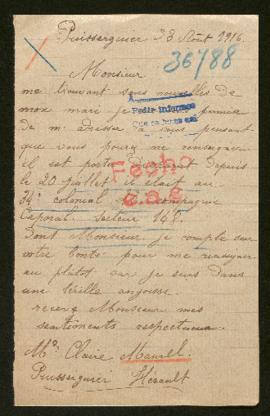 Puisserguier 23 Août 1916.
36788
Monsieur
me trouvant sans nouvelles de
mon mari je permise
de m adresser a vous pensant
que vous pourrez me renseigner
il est porté disparu depuis
le 20 juillet il était au
34e colonial compagnie
Caporal. secteur 148.
Pedir informes
Fecho
Dont Monsieur je compte sur
votre bonté pour me renseigner
au plutôt car je suis dans
une telle angoisse.
recevez Monsieur mes
sentiments respectueux.
Me. Claire Maurel.
Puisserguier Hérault